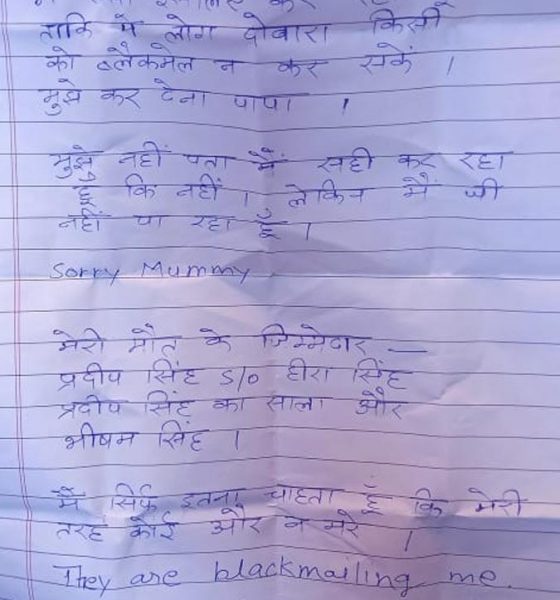 ताकि ये लोग दोबारा किसी
को ब्लैकमेल न कर सकें ।
मुझे कर देना पापा ।
मुझे नहीं पता मैं सही कर रहा
हूँ कि नहीं । लेकिन मैं जी
नहीं पा रहा हूँ ।
Sorry Mummy
मेरी मौत के जिम्मेदार —
प्रदीप सिंह S/o हीरा सिंह
प्रदीप सिंह का साला और
भीषम सिंह ।
मैं सिर्फ इतना चाहता हूँ कि मेरी
तरह कोई और न मरे ।
They are blackmailing me.